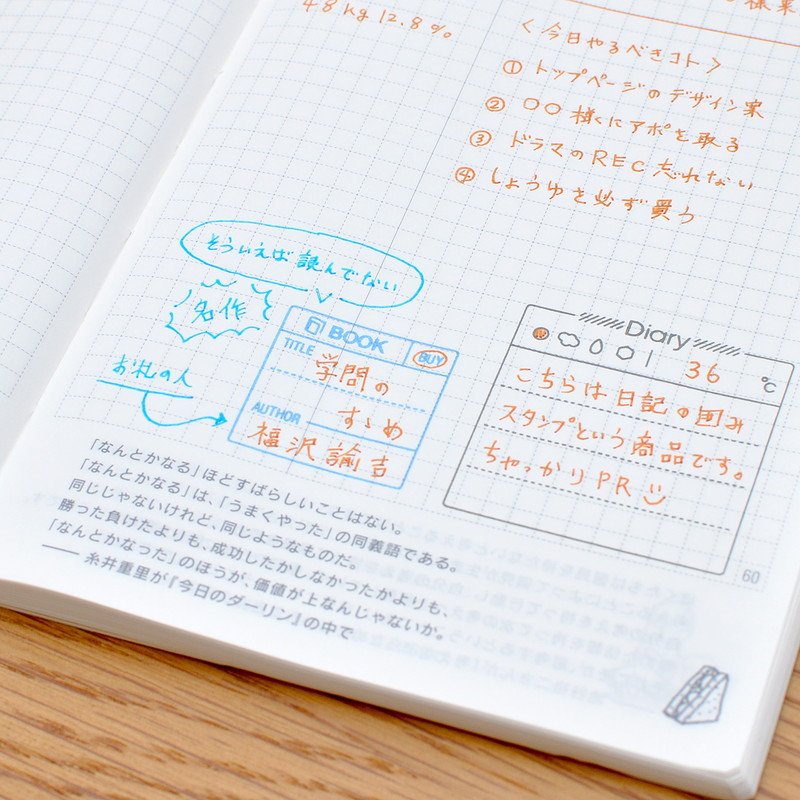 48kg 12.8%
様
<今日やるべきコト>
① トップページのデザイン案
② 〇〇様にアポを取る
③ ドラマのREC忘れない
④ しょうゆを必ず買う
そういえば読んでない
名作
BOOK BUY
TITLE 学問の
すゝめ
AUTHOR
福沢諭吉
お札の人
Diary
36 ℃
こちらは日記の囲み
スタンプという商品です。
ちゃっかりPR
「なんとかなる」ほどすばらしいことはない。
「なんとかなる」は、「うまくやった」の同義語である。
同じじゃないけれど、同じようなものだ。
勝った負けたよりも、成功したかしなかったかよりも、
「なんとかなった」のほうが、価値が上なんじゃないか。
── 糸井重里が『今日のダーリン』の中で
60